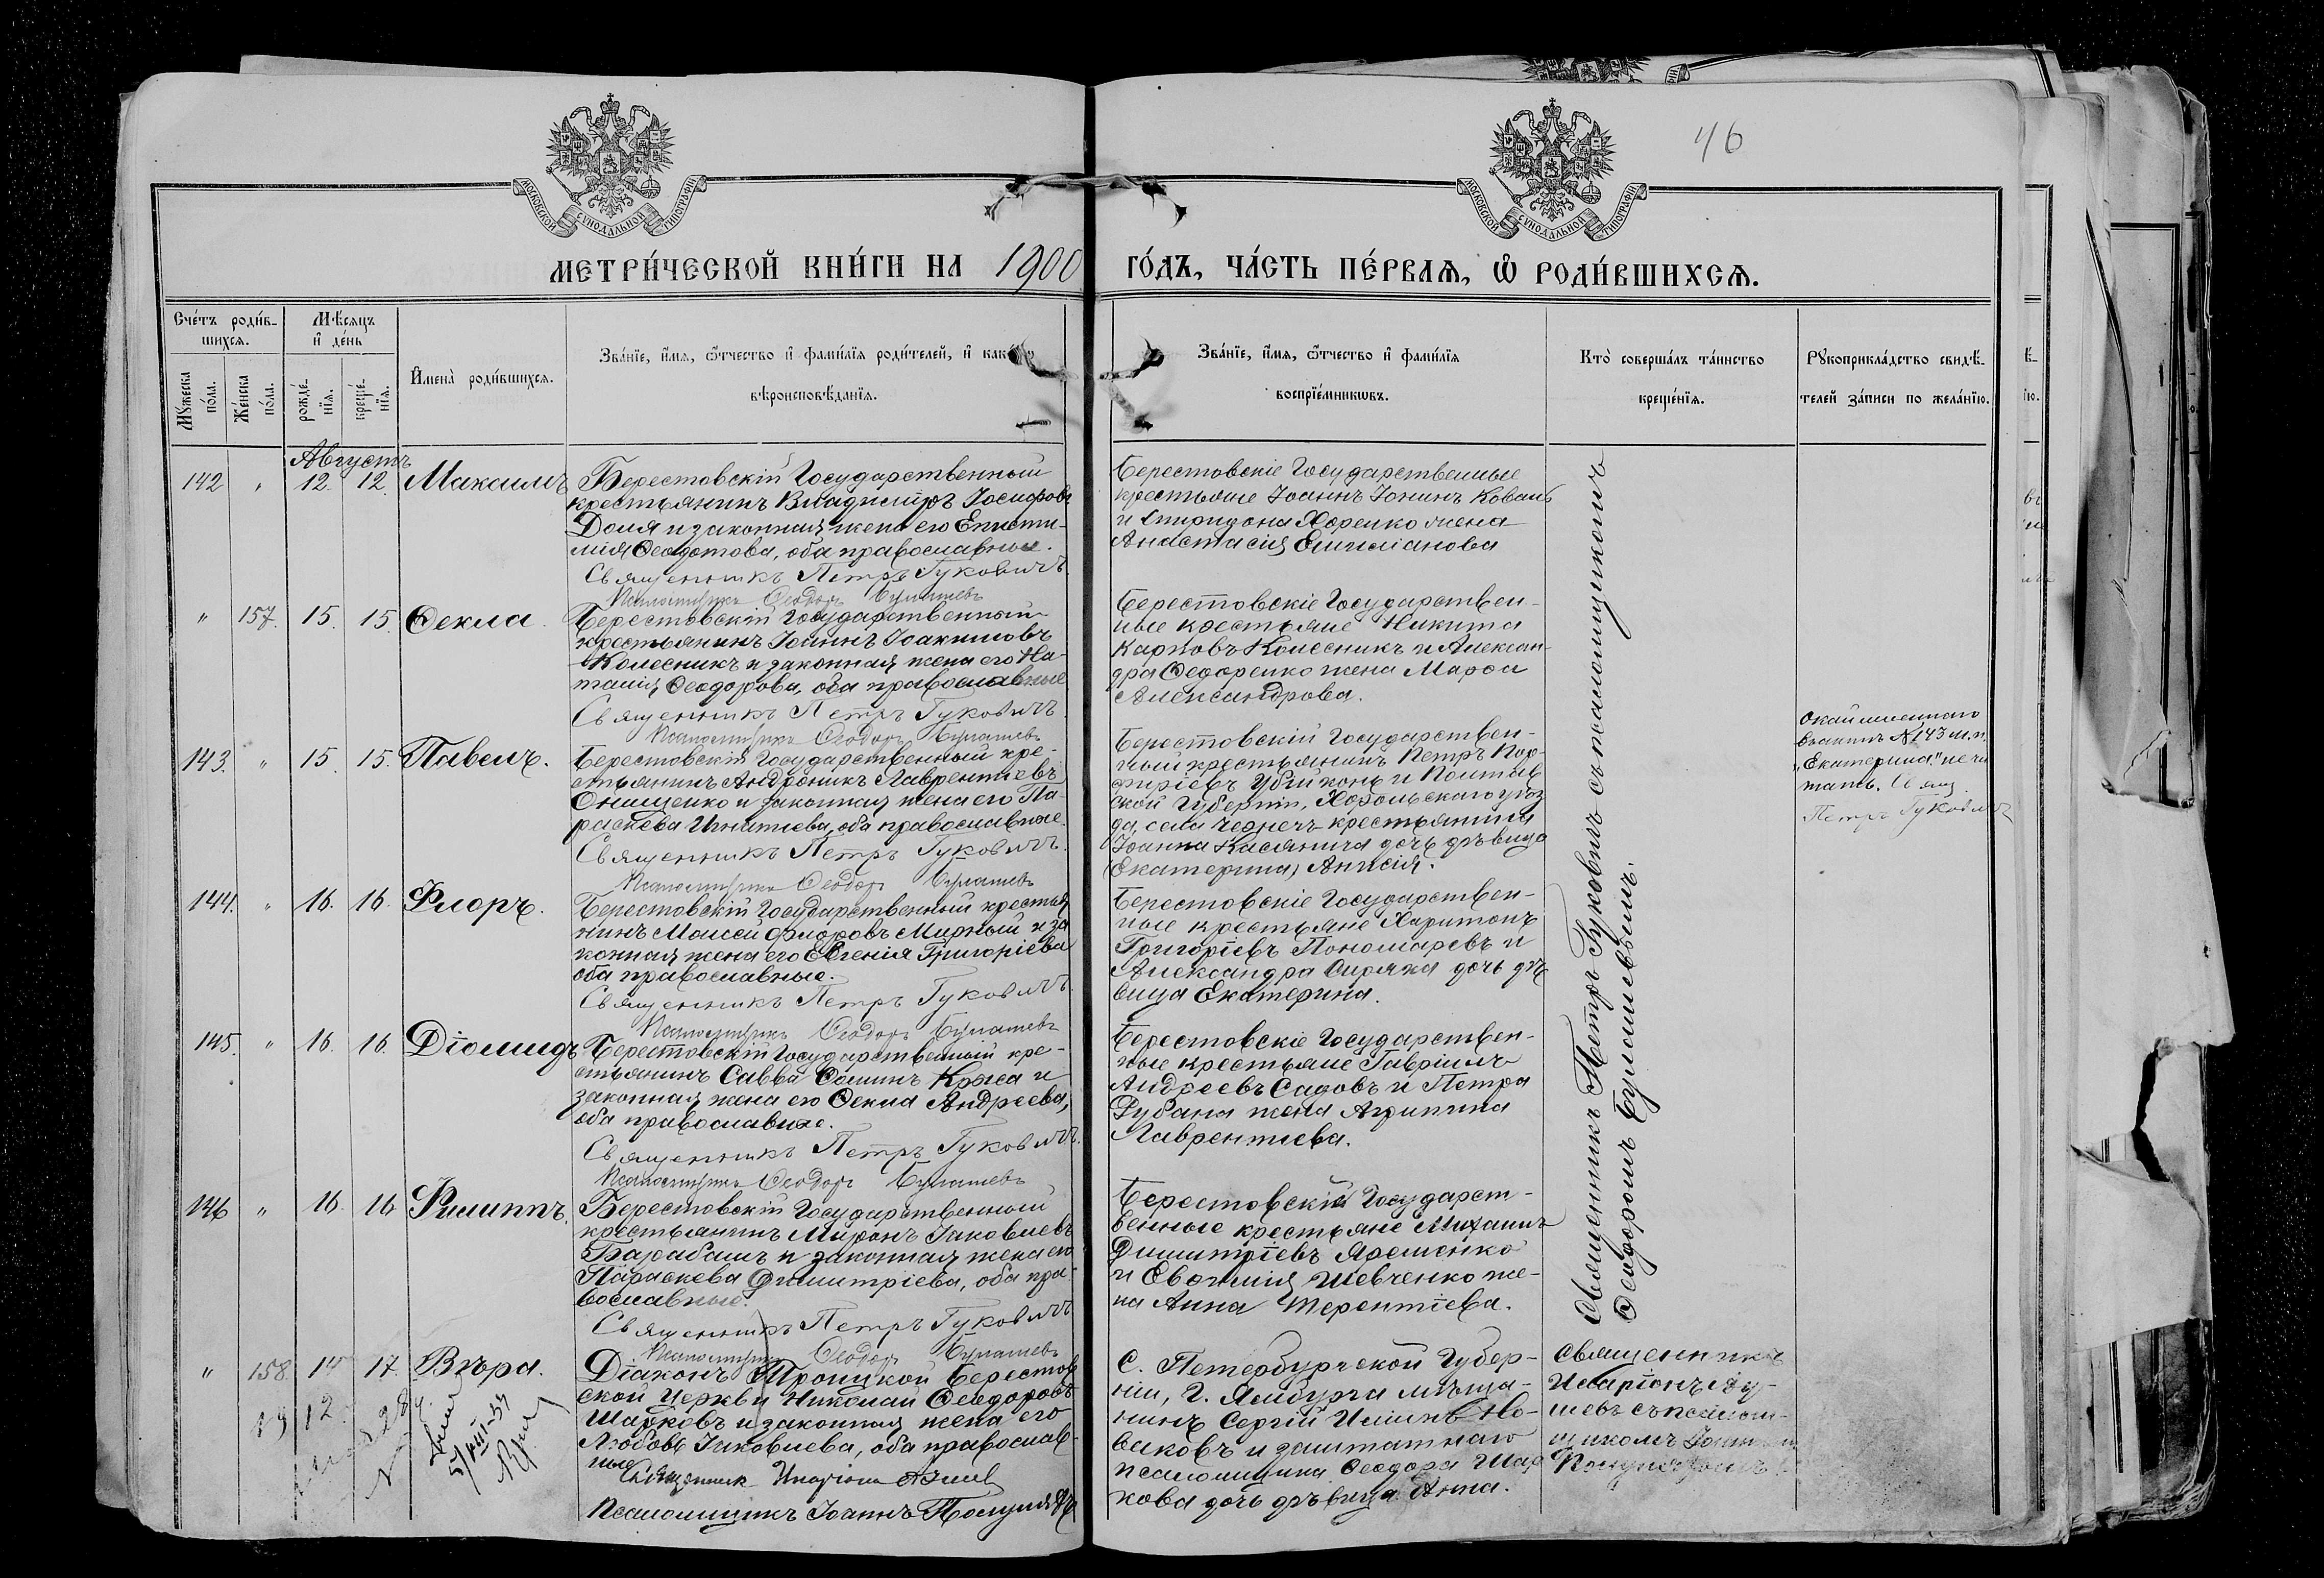 46
МОСКОВСКОЙ СѴНОДАЛЬНОЙ ТИПОГРАФІИ
МОСКОВСКОЙ СѴНОДАЛЬНОЙ ТИПОГРАФІИ
МЕТРИ́ЧЕСКОЙ КНИ́ГИ НА 1900 ГО́ДЪ, ЧА́СТЬ ПЕ́РВАѦ, Ѡ РОДИ́ВШИХСѦ.
Сче́тъ роди́в-
шихсѧ.
Мꙋ́жеска по́ла.
Же́нска по́ла.
Мѣ́сѧцъ
и҆ де́нь
рожде́-
нїѧ.
креще́-
нїѧ.
И҆мена̀ роди́вшихсѧ.
Зва́нїе, и҆́мѧ, ѻ҆́тчество и҆ фами́лїѧ роди́телей, и҆ как
вѣроисповѣ́данїѧ.
Зва́нїе, и҆́мѧ, ѻ҆́тчество и҆ фами́лїѧ
воспрїе́мникѡвъ.
Кто̀ соверша́лъ та́инство
креще́нїѧ.
Рꙋкоприкла́дство свидѣ́-
телей за́писи по жела́нїю.
Августъ
142 " 12. 12. Максимъ
Берестовскій Государственный
крестьянинъ Владиміръ Іосифовъ
Доля и законная жена его Еписти-
мія Ѳеодотова, оба православные.
Священникъ Петръ Гуковичъ
Псаломщикъ Ѳеодоръ Булашевъ
Берестовскіе Государственные
крестьяне Іоаннъ Іонинъ Коваль
и Спиридона Хоренко жена
Анастасія Емиліанова
" 157. 15. 15. Ѳекла
Берестовскій Государственный
крестьянинъ Іоаннъ Іоакимовъ
Колесникъ и законная жена его На-
талія Ѳеодорова, оба православные
Священникъ Петръ Гуковичъ
Псаломщикъ Ѳеодоръ Булашевъ
Берестовскіе Государствен-
ные крестьяне Никита
Карповъ Колесникъ и Алексан-
дра Ѳедоренко жена Марѳа
Александрова.
143. " 15. 15. Павелъ.
Берестовскій Государственный кре-
стьянинъ Андроникъ Лаврентіевъ
Онищенко и законная жена его Па-
раскева Игнатіева, оба православные.
Священникъ Петръ Гуковичъ
Псаломщикъ Ѳеодоръ Булашевъ
Берестовскій Государствен-
ный крестьянинъ Петръ Пор-
фиріевъ Убійконь и Полтав
ской Губерніи, Хорольскаго уѣз
да, села крестьянина
Іоанна Касянича дочь дѣвица
(Екатерина) Анисія.
въ актѣ № 143 м.п.
"Екатерина" не чи
тать. Свящ.
Петръ Гуковичъ
144. " 16. 16. Флоръ.
Берестовскій Государственный крестья
нинъ Моисей Флоровъ Мирный и за
конная жена его Евгенія Григоріева
оба православные.
Священникъ Петръ Гуковичъ
Псаломщикъ Ѳеодоръ Булашевъ
Берестовскіе Государствен-
ные крестьяне Харитонъ
Григоріевъ Пономаревъ и
Александра Сиряка дочь дѣ
вица Екатерина.
145. " 16. 16. Діомидъ
Берестовскій Государственный кре-
стьянинъ Савва Ѳоминъ Крыса и
законная жена его Ѳекла Андреева,
оба православные.
Священникъ Петръ Гуковичъ
Псаломщикъ Ѳеодоръ Булашевъ
Берестовскіе Государствен-
ные крестьяне Гавріилъ
Андреевъ Садовъ и Петра
Рубана жена Агрипина
Лаврентіева.
146 " 16. 16 Филиппъ.
Берестовскій Государственный
крестьянинъ Миронъ Іаковлевъ
Барабашъ и законная жена его
Параскева Димитріева, оба пра-
вославные.
Священникъ Петръ Гуковичъ
Псаломщикъ Ѳеодоръ Булашевъ
Берестовскій Государст-
венные крестьяне Михаилъ
Димитріевъ Яременко
и Евѳимія Шевченко же-
на Анна Терентіева.
Священникъ Петръ Гуковичъ съ псаломщикомъ
Ѳеодоромъ Булашевымъ.
" 158. 14 17. Вѣра.
Діаконъ Троицкой Берестов
ской Церкви Николай Ѳеодоровъ
Шарковъ и законная жена его
Любовь Іаковлева, оба православ-
ные
Священник Иларіонъ
Псаломщикъ Іоаннъ
С. Петербургской Губер-
ніи, Г. Ямбурга мѣща-
нинъ Сергій Иліинъ Но-
виковъ и заштатнаго
псаломщика Ѳеодора Шар
кова дочь дѣвица Анна.
Священникъ
Иларіонъ
съ псалом-
щикомъ
19 12.
5/VIII-51